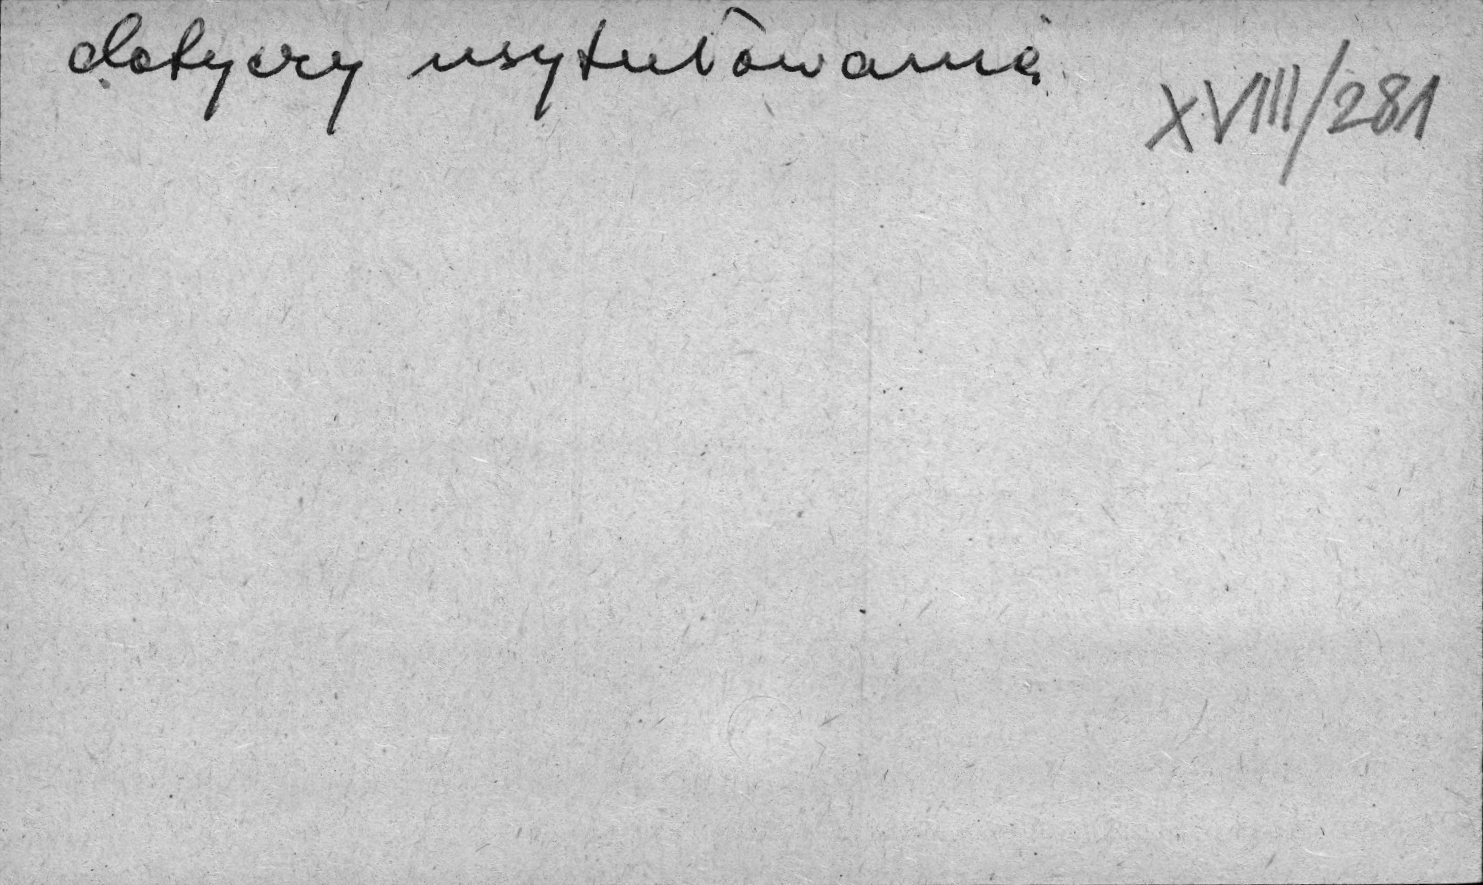 dotyczy usytułowania
XVIII/281